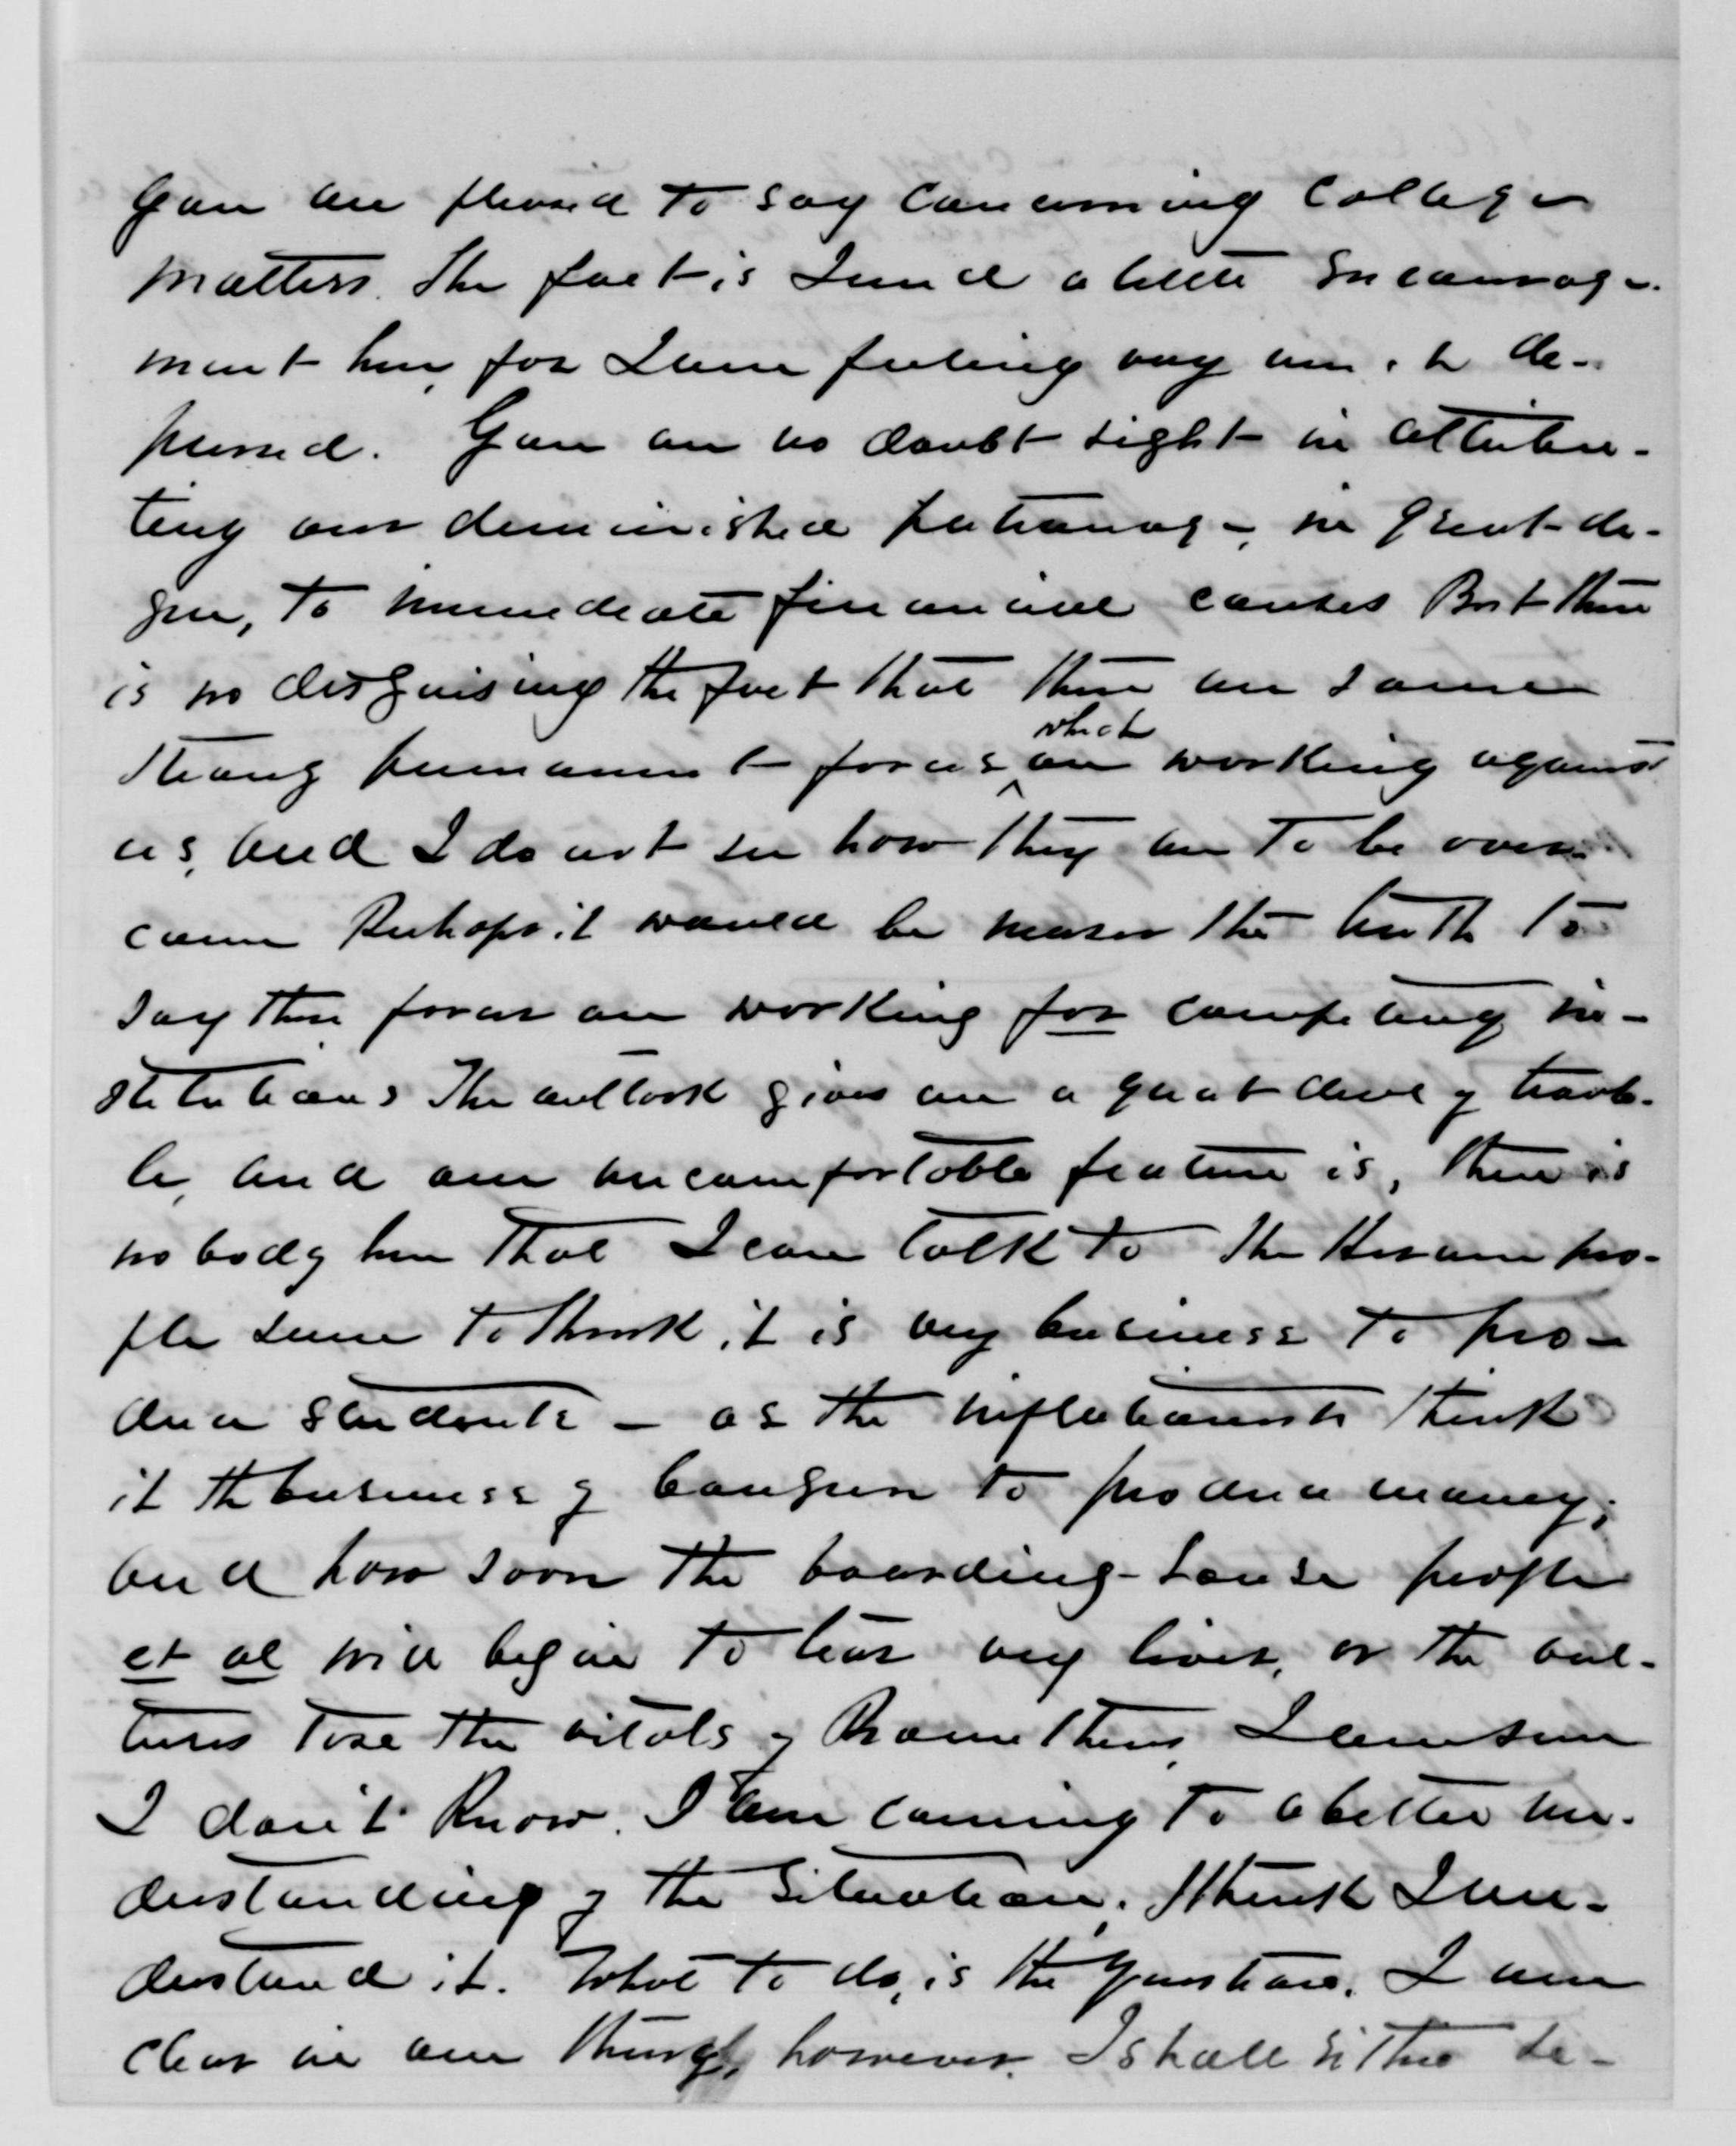 You are pleased to say concerning College
matters. The fact is I need a little encourage-
ment here, for I am feeling very much de-
pressed. You are no doubt right in attribu-
ting our diminished patronage, in great de-
gree, to immediate financial causes But there
is no disguising the fact that there are some
strong permanent forces which are working against
us, and I do not see how they are to be over-
come Perhaps it would be nearer the truth to
say these forces are working for competing in-
stitutions The outlook gives me a great deal of troub-
le, and one uncomfortable feature is, there is
nobody here that I can talk to The Hiram peo-
ple seem to think it is my business to pro-
duce students - as the inflationists think
it the business of Congress to produce money;
and how soon the boarding-house people
et al will begin to tear my liver, as the vul-
tures tore the vitals of Prometheus, I am sure
I don't know. I am coming to a better un-
derstanding of the situation. I think I un-
derstand it. What to do, is the question. I am
clear in one thing, however. I shall either de-